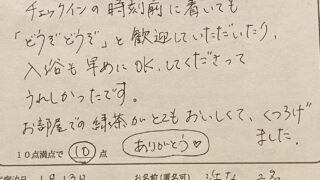 チェックインの時刻前に着いても
「どうぞどうぞ」と歓迎していただいたり、
入浴も早めにOKしてくださって
うれしかったです。
お部屋での緑茶がとてもおいしくて、くつろげ
ました。
10点満点で 10 点
ありがとう♡
月13日
お名前(匿名可)